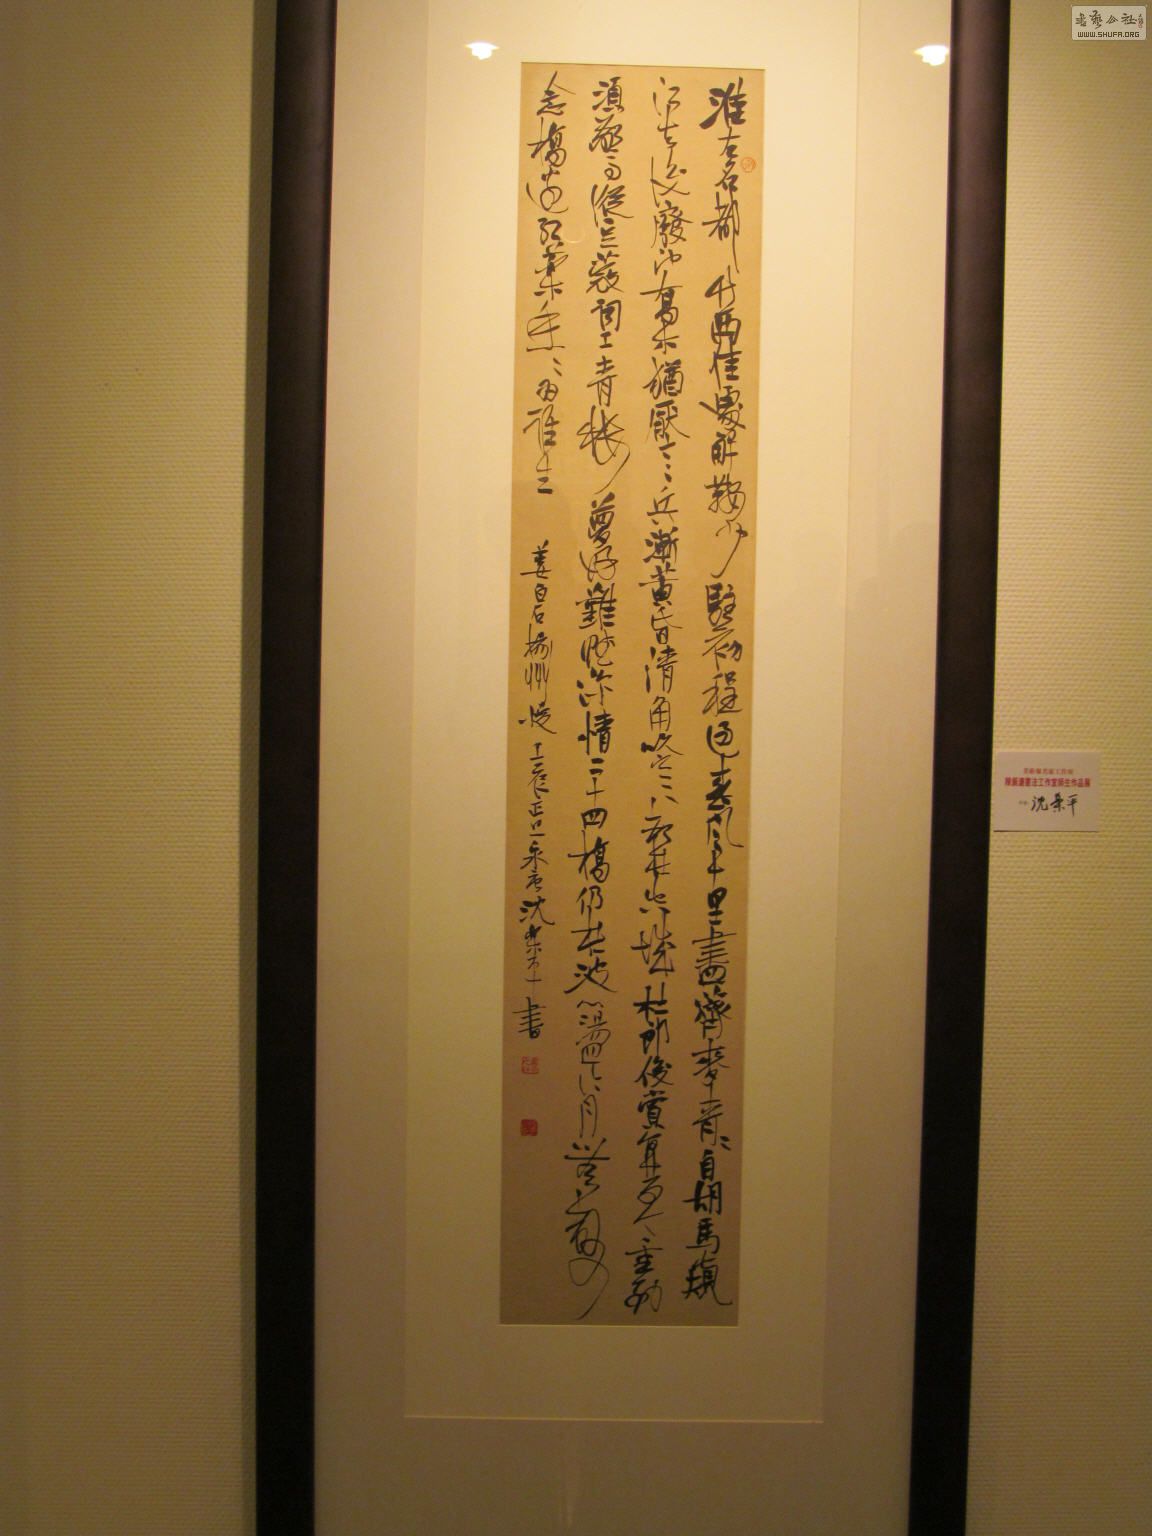 淮左名都竹西佳處解鞍少駐初程過春風十里盡薺麥青〻自胡馬窺
江去後廢池喬木猶厭言兵漸黃昏清角吹寒都在空城杜郎俊賞算而今重到
須驚縱豆蔻詞工青樓夢好難賦深情二十四橋仍在波心蕩冷月無聲
念橋邊紅藥年〻為誰生
姜白石揚州慢 壬辰正 沈 平書
書法工作室師生作品展
沈 平
書藝公社
WWW.SHUFA.ORG